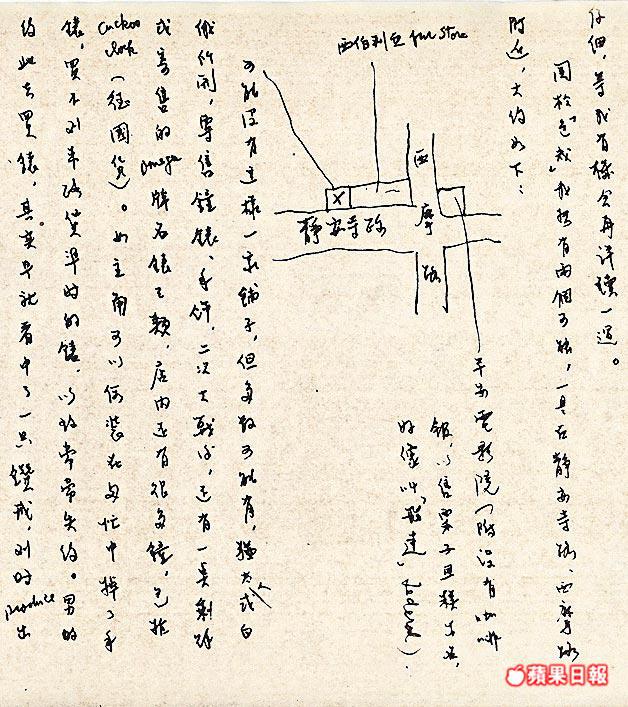 仔細,等我有機會再詳讀一遍。
關於「色,戒」我想有兩個可能,一是在靜安寺路、西摩路
附近,大約如下:
西伯利亞 fur store
西摩路
靜安寺路
X
平安電影院(附設有咖啡
館,以售栗子蛋糕出名,
好像叫「飛達」Federal)。
可能沒有這樣一家鋪子,但多數可能有,猶太或白
俄所開,專售鐘錶、手飾,二次大戰時,還有一點剩餘
或寄售的 omega 牌名錶之類,店內還有很多鐘,包括
cuckoo clock(德國貨)。女主角可以假裝在匆忙中掉了手
錶,買不到準時的錶,以致常常失約。男的
約她去買錶,其實早就看中了一只鑽戒,到時 produce 出
蘋果日報